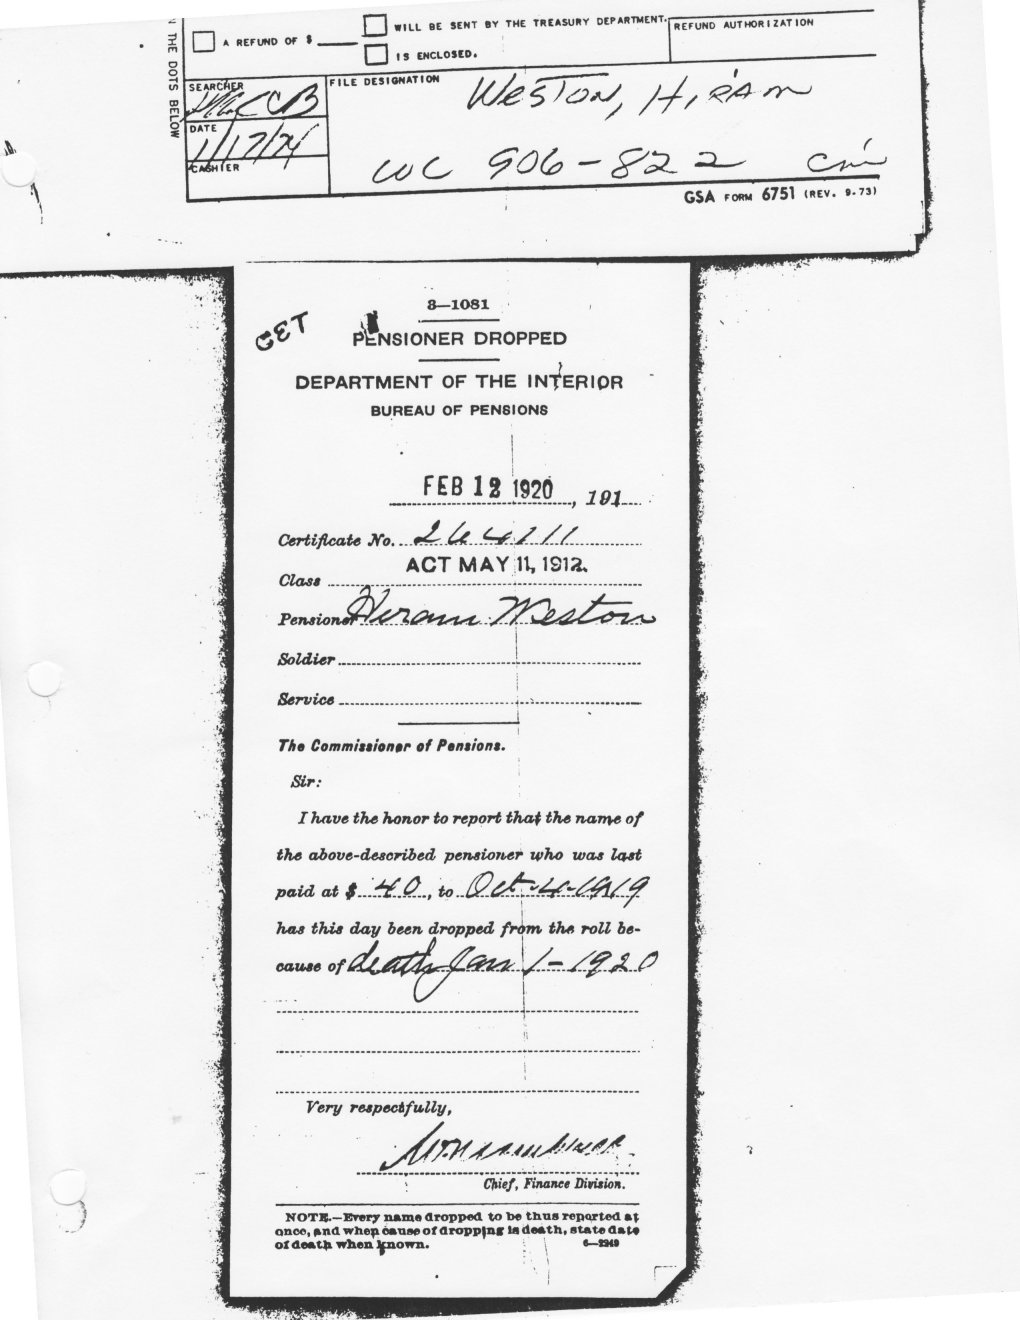 N THE DOTS BELOW
A REFUND OF $
WILL BE SENT BY THE TREASURY DEPARTMENT.
IS ENCLOSED.
REFUND AUTHORIZATION
SEARCHER
CCB
DATE
1/17/74
CASHIER
FILE DESIGNATION
WESTON, HIRAM
WC 906-822
GSA FORM 6751 (REV. 9-73)
GET
3—1081
PENSIONER DROPPED
DEPARTMENT OF THE INTERIOR
BUREAU OF PENSIONS
FEB 12 1920, 191
Certificate No. 264111
Class ACT MAY 11, 1912.
Pensioner Hiram Weston
Soldier
Service
The Commissioner of Pensions.
Sir:
I have the honor to report that the name of
the above-described pensioner who was last
paid at $ 40, to Oct-4-1919
has this day been dropped from the roll be-
cause of death Jan 1-1920
Very respectfully,
Chief, Finance Division.
NOTE.—Every name dropped to be thus reported at
once, and when cause of dropping is death, state date
of death when known.
6—2249